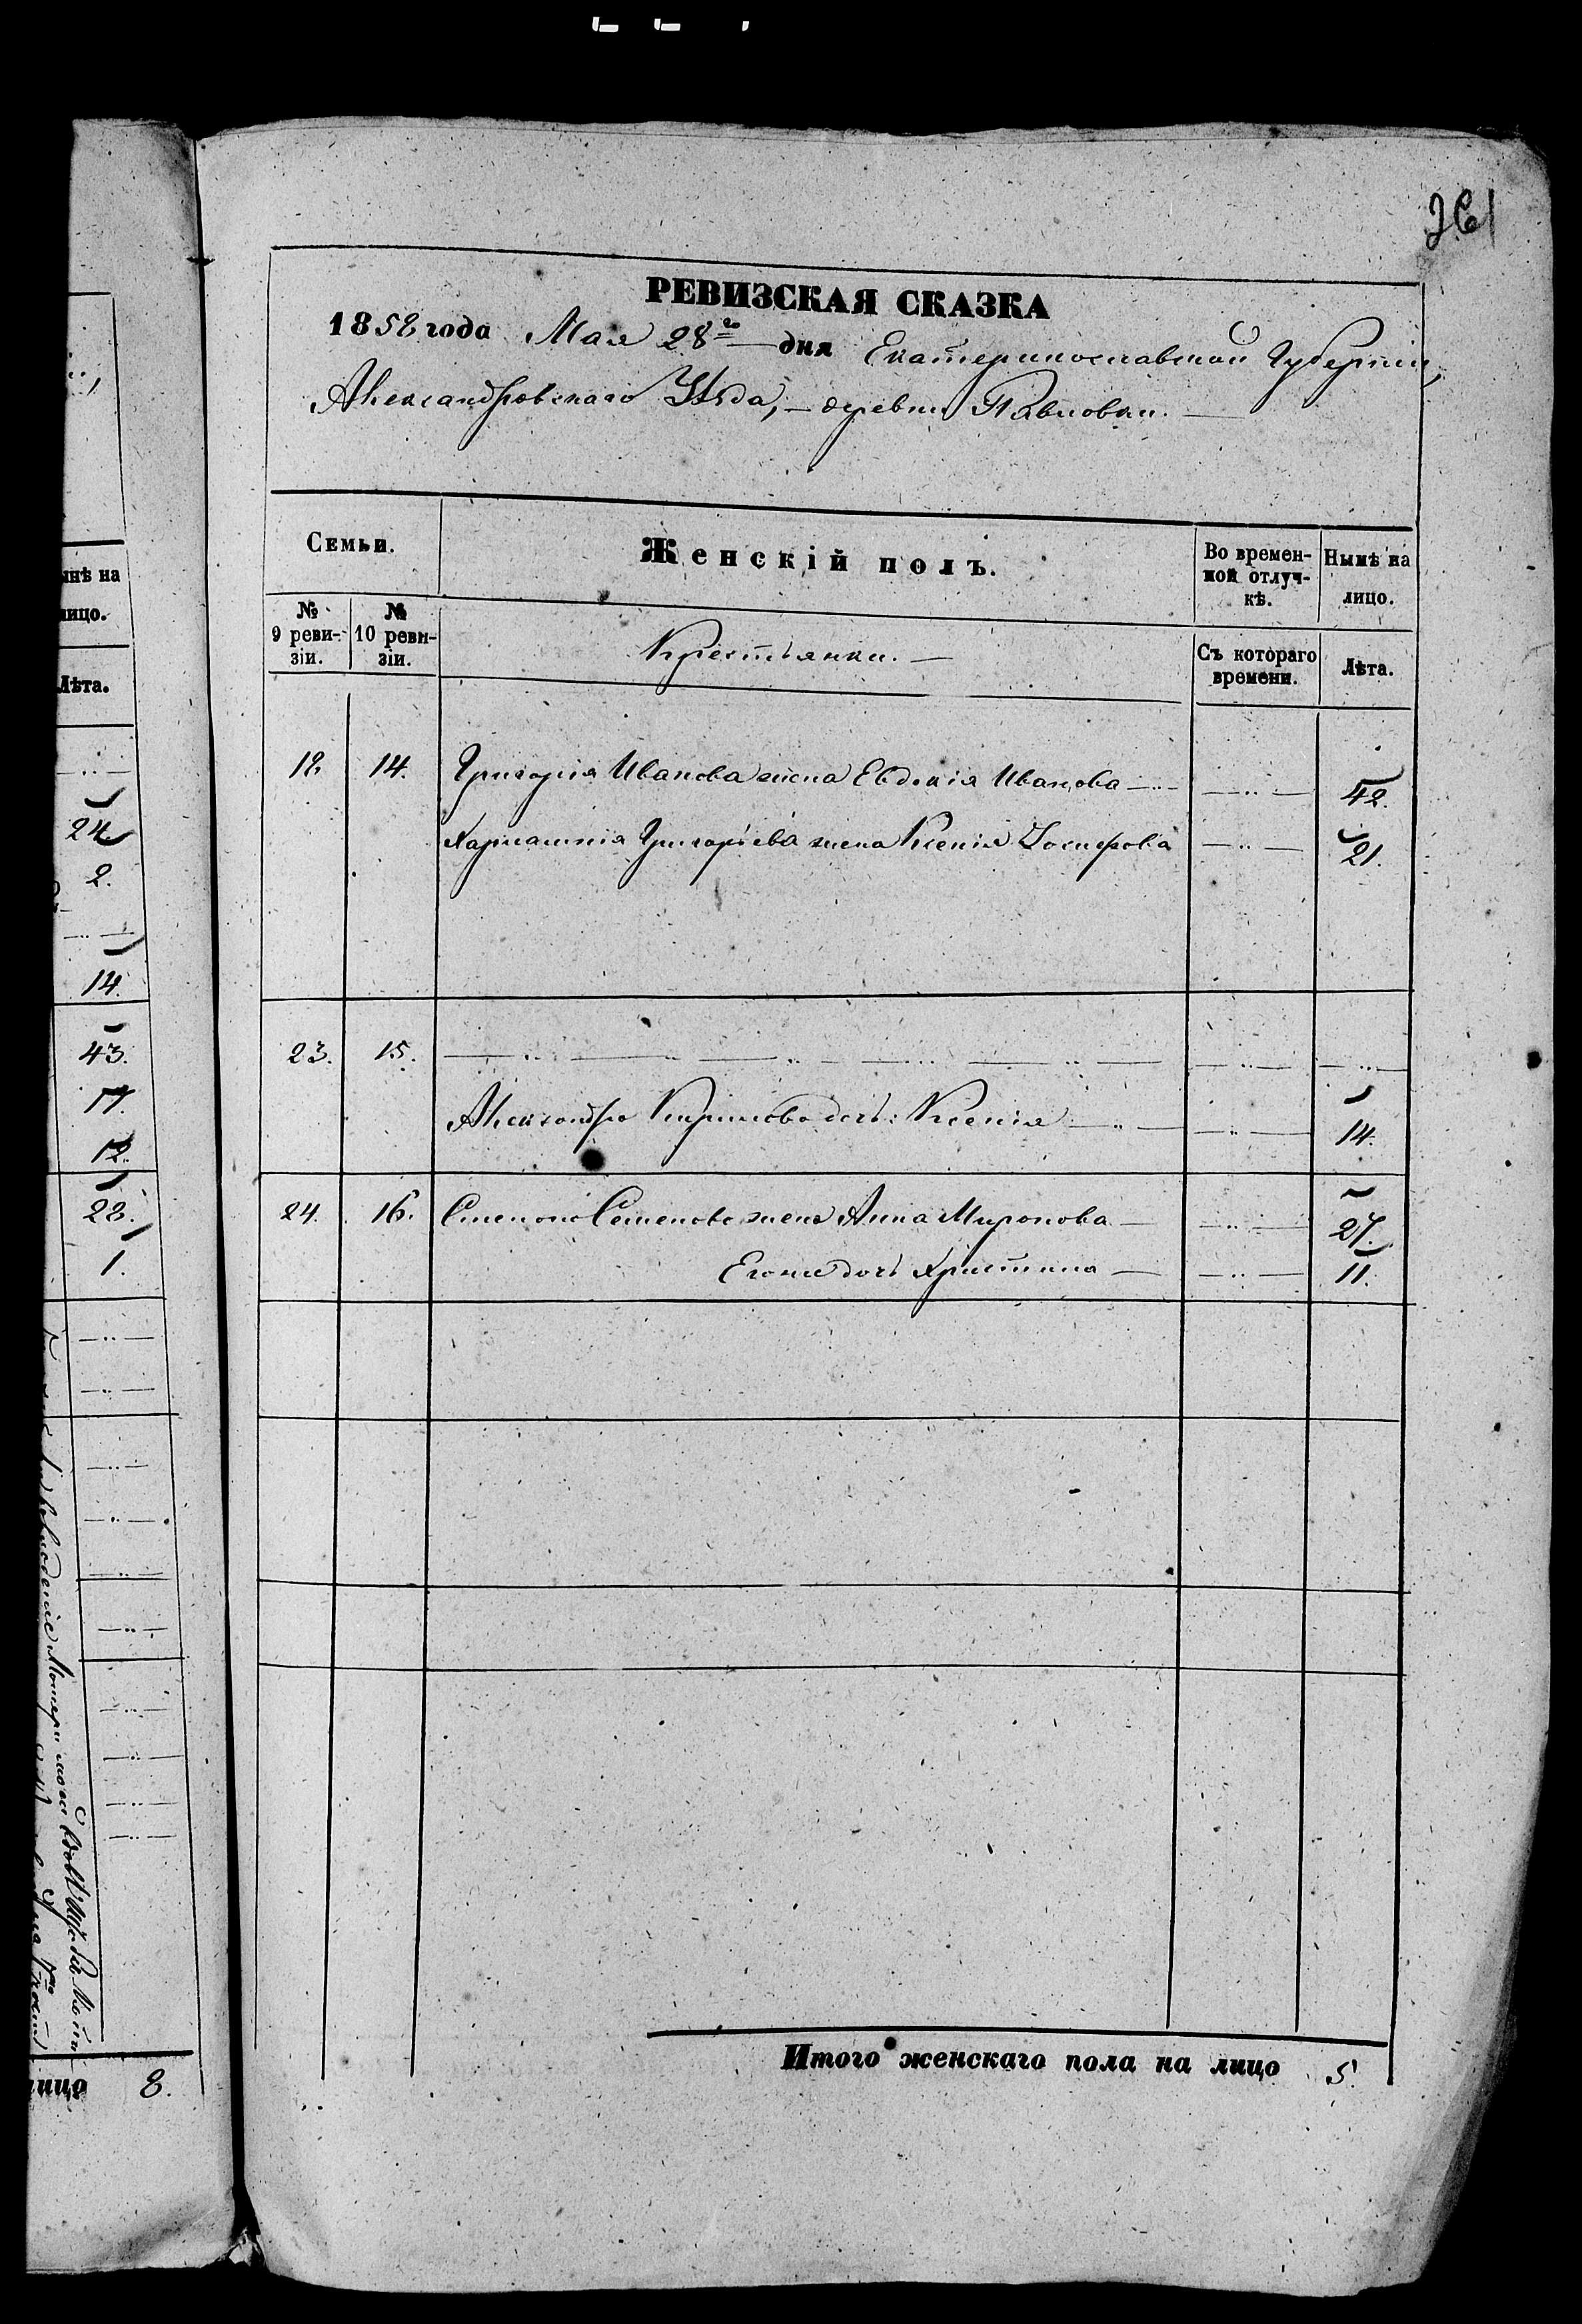 261
РЕВИЗСКАЯ СКАЗКА
1858 года Мая 28го дня Екатеринославской Губерніи,
Александровскаго Уѣзда, — деревни Павловки. —
Семьи.
Женскій полъ.
Во времен-
ной отлуч-
кѣ.
Нынѣ на
лицо.
№
9 реви-
зіи.
№
10 реви-
зіи.
Крестьянки. —
Съ котораго
времени.
Лѣта.
18. 14. Григорія Иванова жена Евдокія Иванова 42.
Григорьева жена Ксенія 21.
23. 15.
Александра Кирилова дочь: Ксенія 14.
24. 16. Степана Семенова жена Анна Миронова 27.
Его же дочь Христина 11.
Итого женскаго пола на лицо 5.
инѣ на
лицо.
Лѣта.
24
2.
14.
43.
17.
12.
22.
1.
лицо 8.